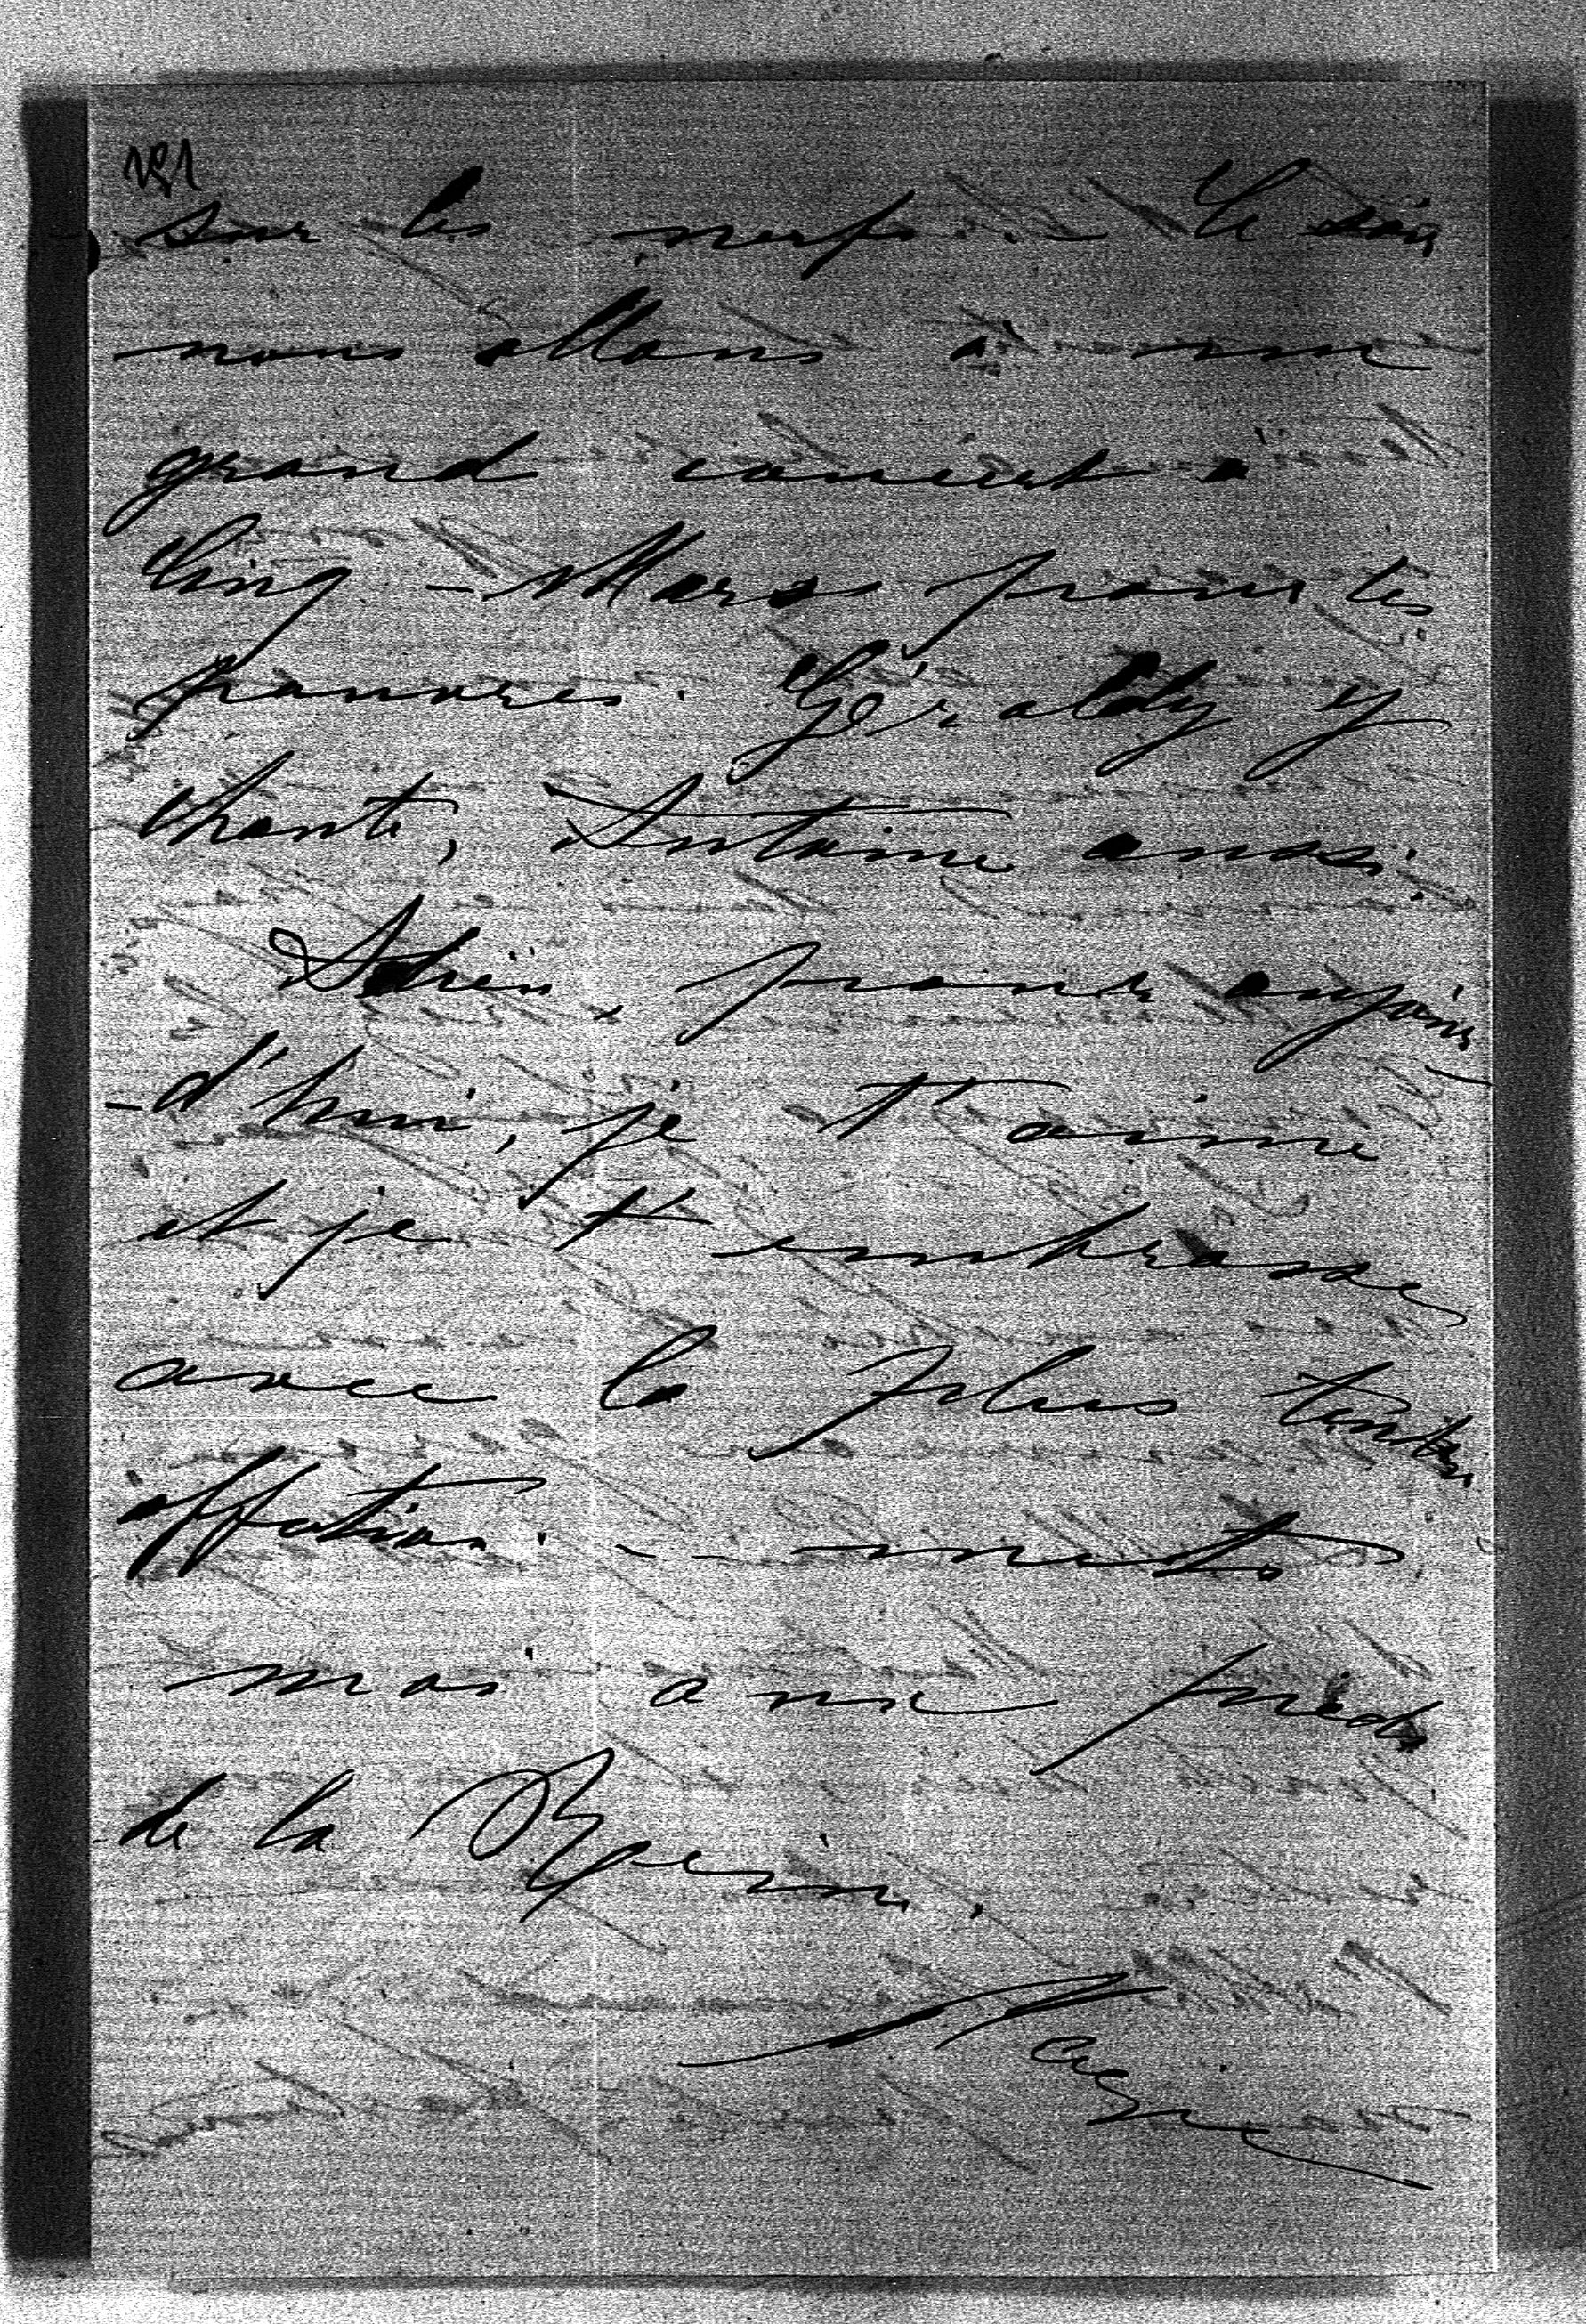 sur les nerfs. – Ce soir
nous allons à un
grand concert à
Cinq-Mars pour les
pauvres. Géraldy y
chante, Antoine aussi.
Adieu, pour aujour
-d'hui, je t'aime
et je t'embrasse
avec la plus tendre
affection. – mets
moi aux pieds
de la Reine.